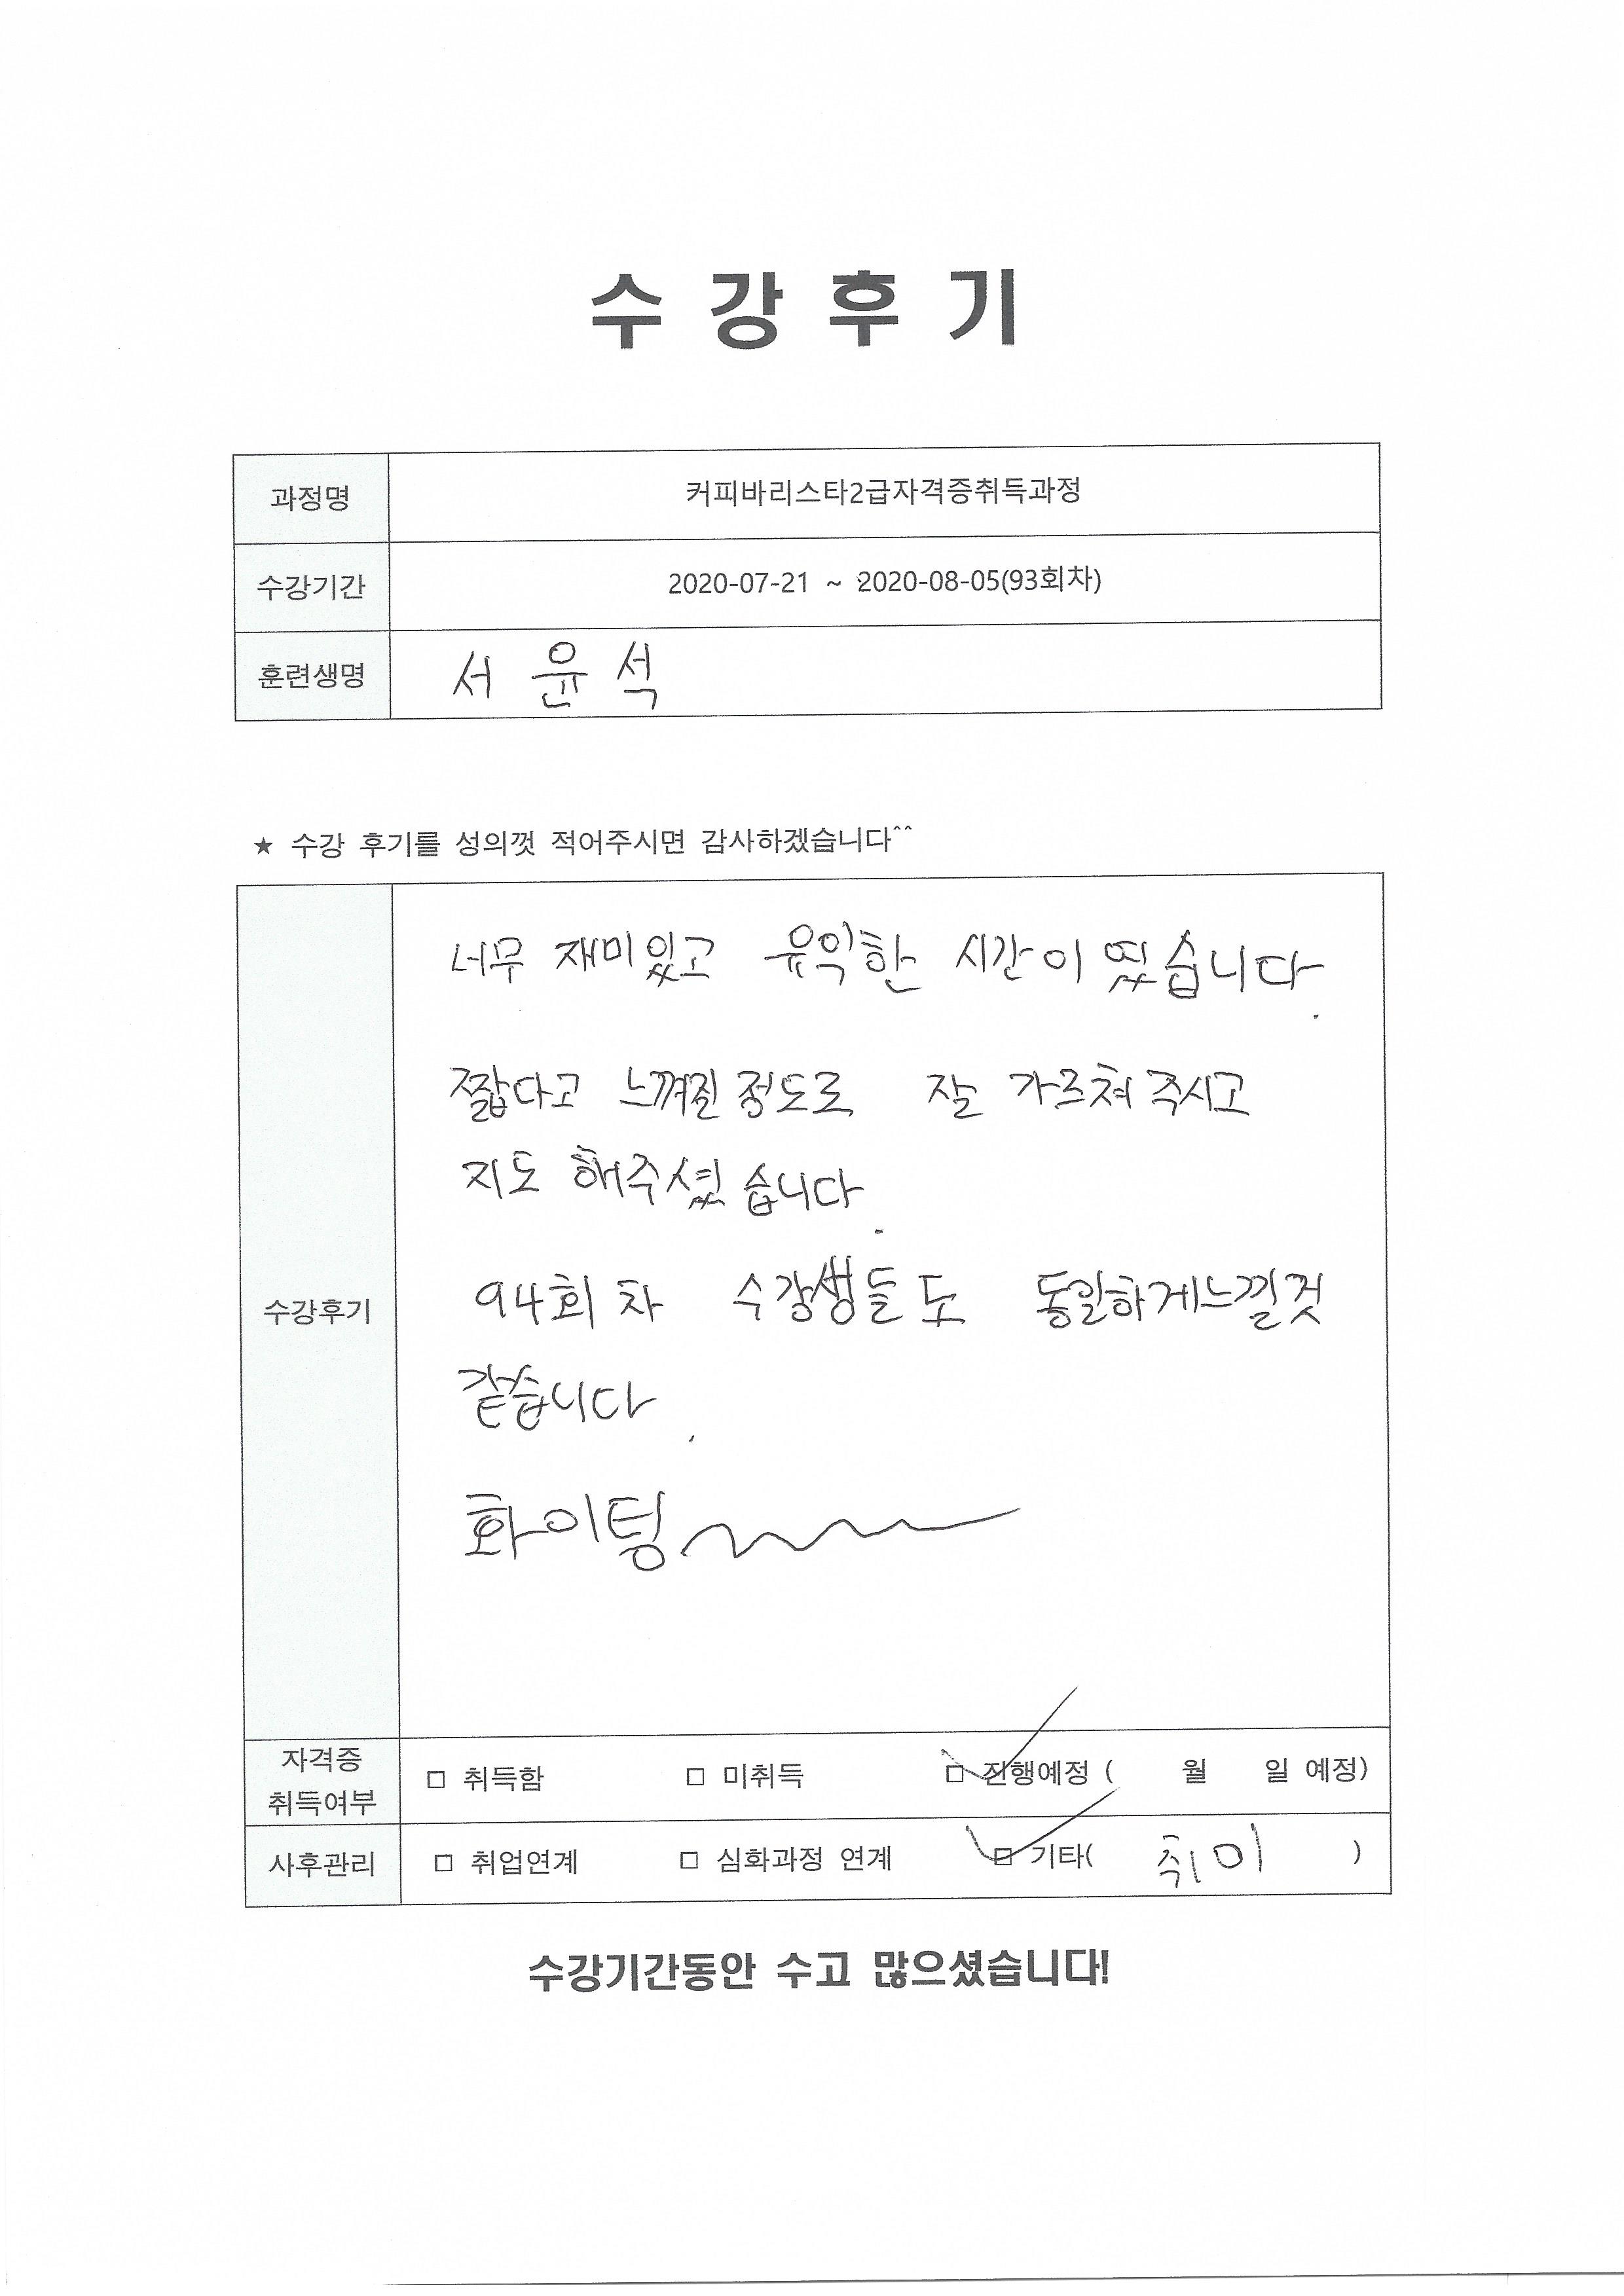 수 강 후 기
과정명 커피바리스타2급자격증취득과정
수강기간 2020-07-21 ~ 2020-08-05(93회차)
훈련생명 서 윤 석
★ 수강 후기를 성의껏 적어주시면 감사하겠습니다^^
너무 재미있고 유익한 시간이 였습니다.
짧다고 느껴질 정도로 잘 가르쳐 주시고
지도 해주셨습니다.
수강후기 94회 차 수강생들도 동일하게느낄것
같습니다.
화이팅~~~
자격증
취득여부 □ 취득함 □ 미취득 ☑ 진행예정 ( 월 일 예정)
사후관리 □ 취업연계 □ 심화과정 연계 ☑ 기타( 취미 )
수강기간동안 수고 많으셨습니다!